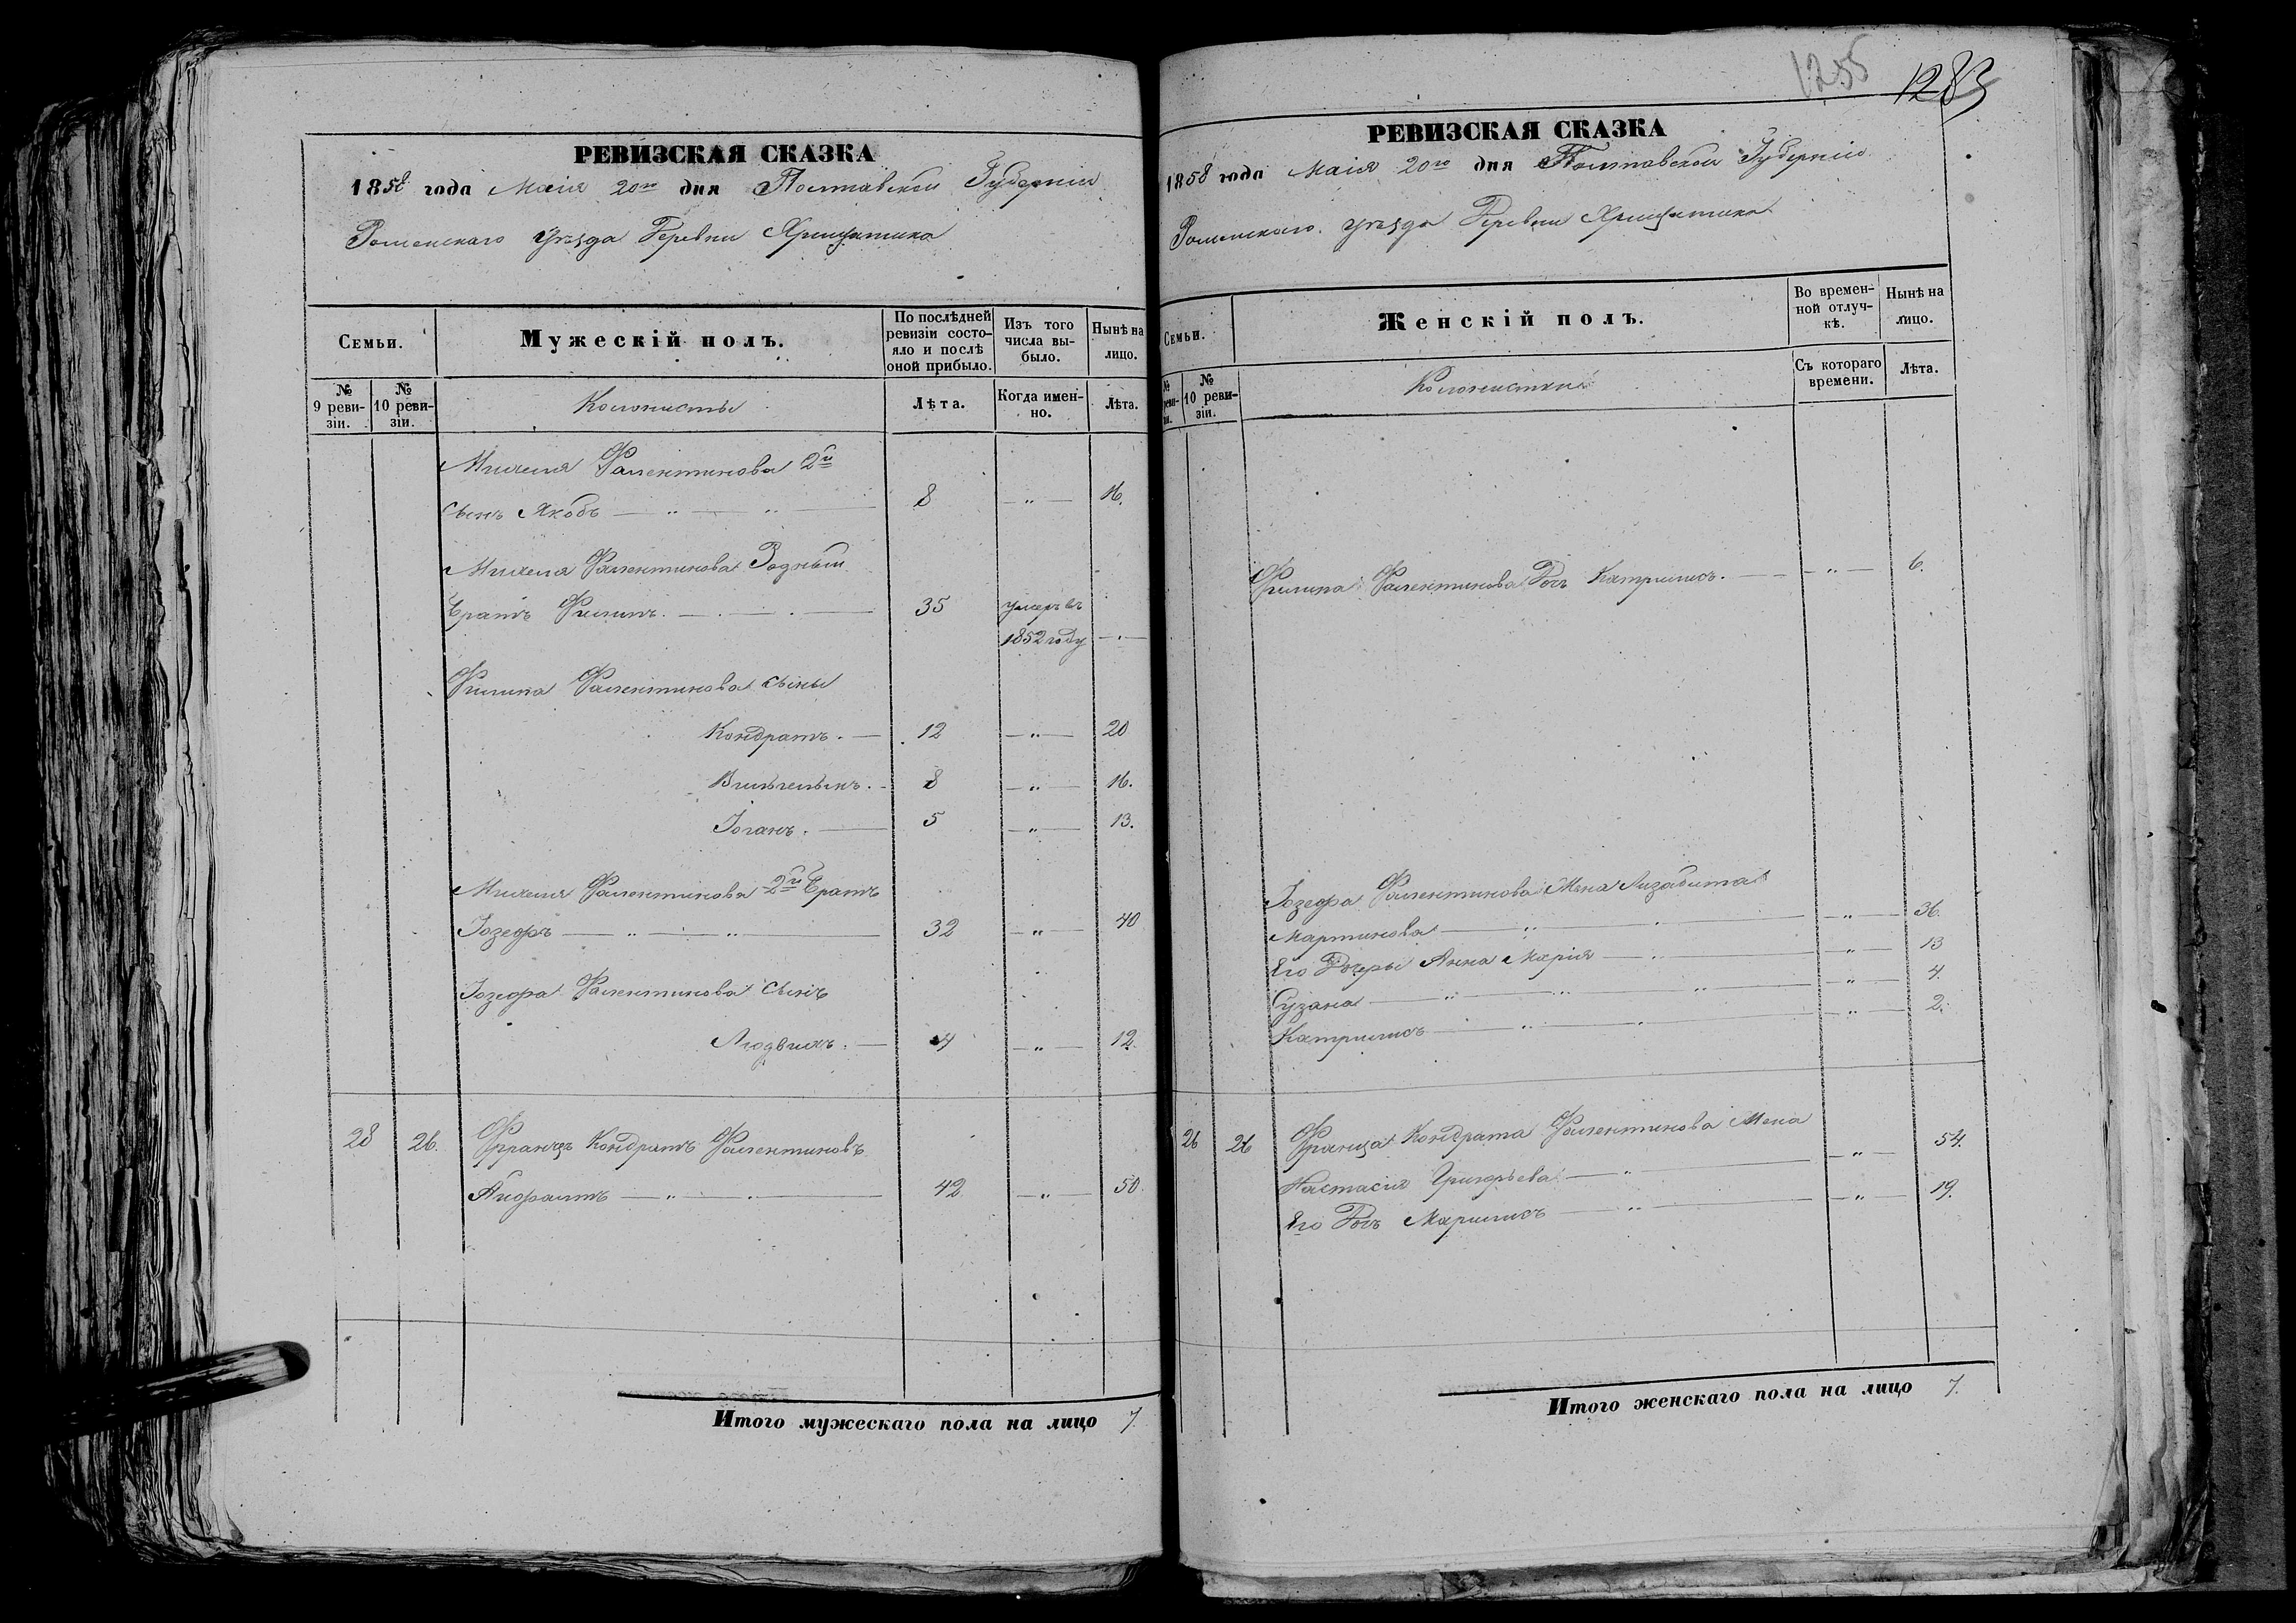 РЕВИЗСКАЯ СКАЗКА
1858 года Маія 20го дня Полтавской Губерніи
Роменскаго Уѣзда Деревни Хрищатика
Семьи.
Мужескій полъ.
По послѣдней ревизіи состояло и послѣ оной прибыло.
Изъ того числа выбыло.
Нынѣ на лицо.
№ 9 ревизіи.
№ 10 ревизіи.
Колонисты
Лѣта.
Когда именно.
Лѣта.
Михеля Фалентинова 2й
сынъ Якобъ 8 — " — 16.
Михеля Фалентинова Родный
Братъ Филипъ. 35 умеръ въ
1852 году
Филипа Фалентинова сыны
Кондратъ. 12 — " — 20
Вильгельмъ. 8 — " — 16.
Іоганъ. 5 — " — 13.
Михеля Фалентинова 2й Братъ
Іозефъ 32 — " — 40
Іозефа Фалентинова сынъ
Людвихъ. 4 — " — 12.
28 26. Францъ Кондратъ Фалентиновъ
42 — " — 50.
Итого мужескаго пола на лицо 7.
1255
1283
РЕВИЗСКАЯ СКАЗКА
1858 года Маія 20го дня Полтавской Губерніи
Роменскаго Уѣзда Деревни Хрищатика
Семьи.
Женскій полъ.
Во временной отлучкѣ.
Нынѣ на лицо.
№ 10 ревизіи.
Колонистки
Съ котораго времени.
Лѣта.
Филипа Фалентинова Дочь Катрилисъ. — " — 6.
Іозефа Фалентинова Жена Лизабита
Мартинова — " — 36.
Его Дочеры Анна Марія — " — 13
Сузана — " — 4.
Катрилисъ — " — 2.
26 26 Франца Кондрата Фалентинова Жена
Настасія Григорьева — " — 54.
Его Дочь Марилисъ — " — 19.
Итого женскаго пола на лицо 7.